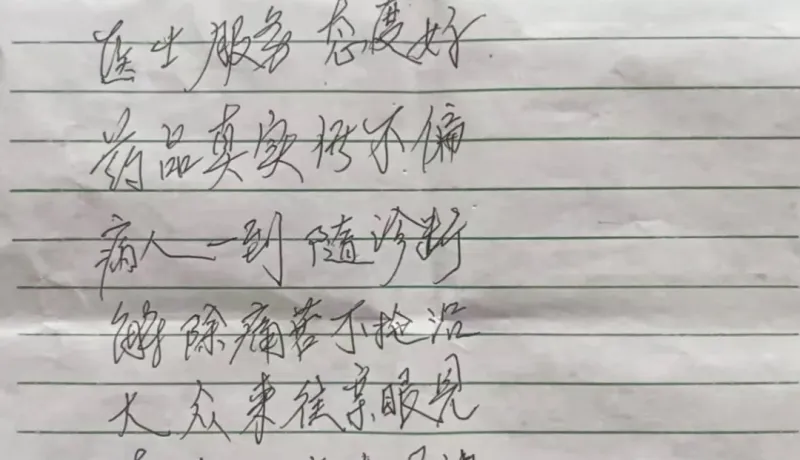 医生服务态度好
药品真实价不偏
病人一到随诊断
解除痛苦不拖沿
大众来往亲眼见